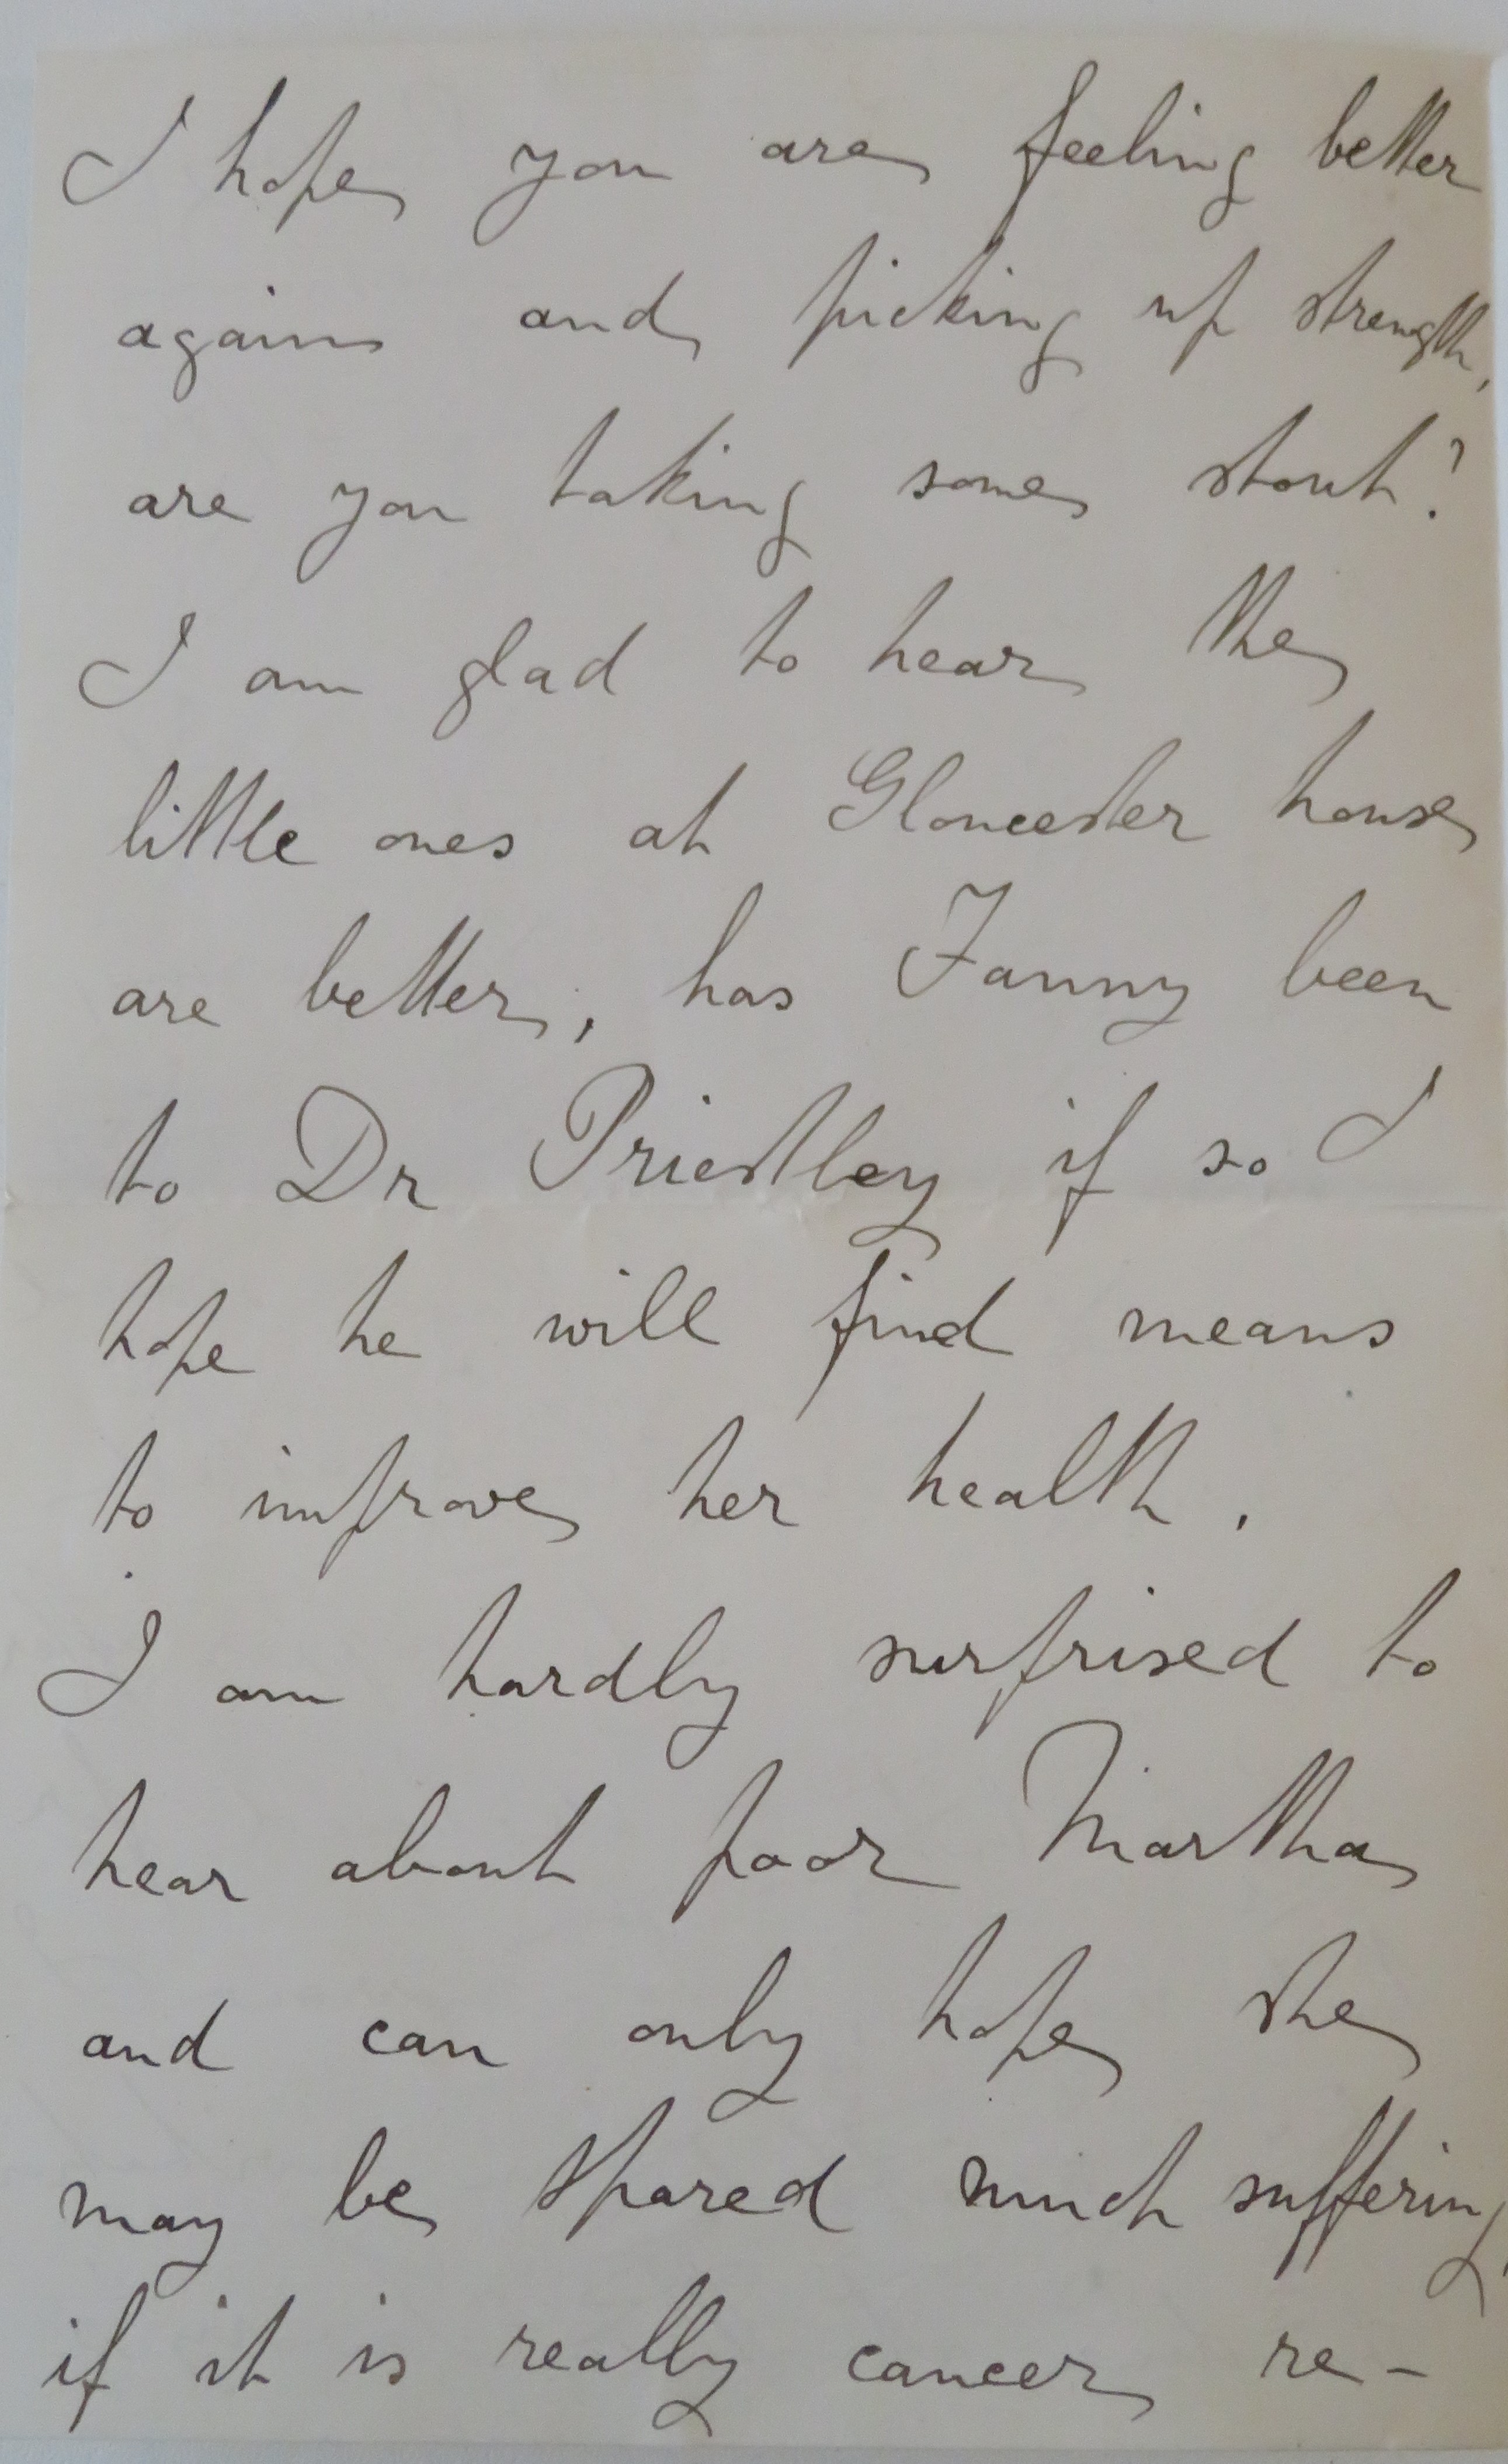 I hope you are feeling better
again and picking up strength,
are you taking some stout?
I am glad to hear the
little ones at Gloucester house
are better, has Fanny been
to Dr Priestley if so I
hope he will find means
to improve her health.
I am hardly surprised to
hear about poor Martha
and can only hope she
may be spared much suffering,
if it is really cancer re-